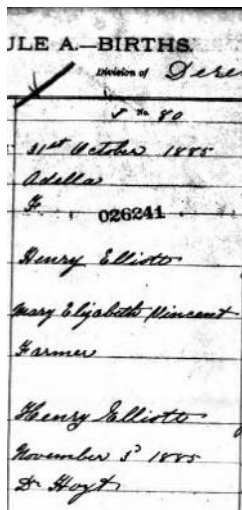 ULE A.—BIRTHS.
Division of Dere
No 80
31st October 1885
Adella
F
026241
Henry Elliott
Mary Elizabeth Vincent
Farmer
Henry Elliott
November 3d 1885
Dr Hoyt